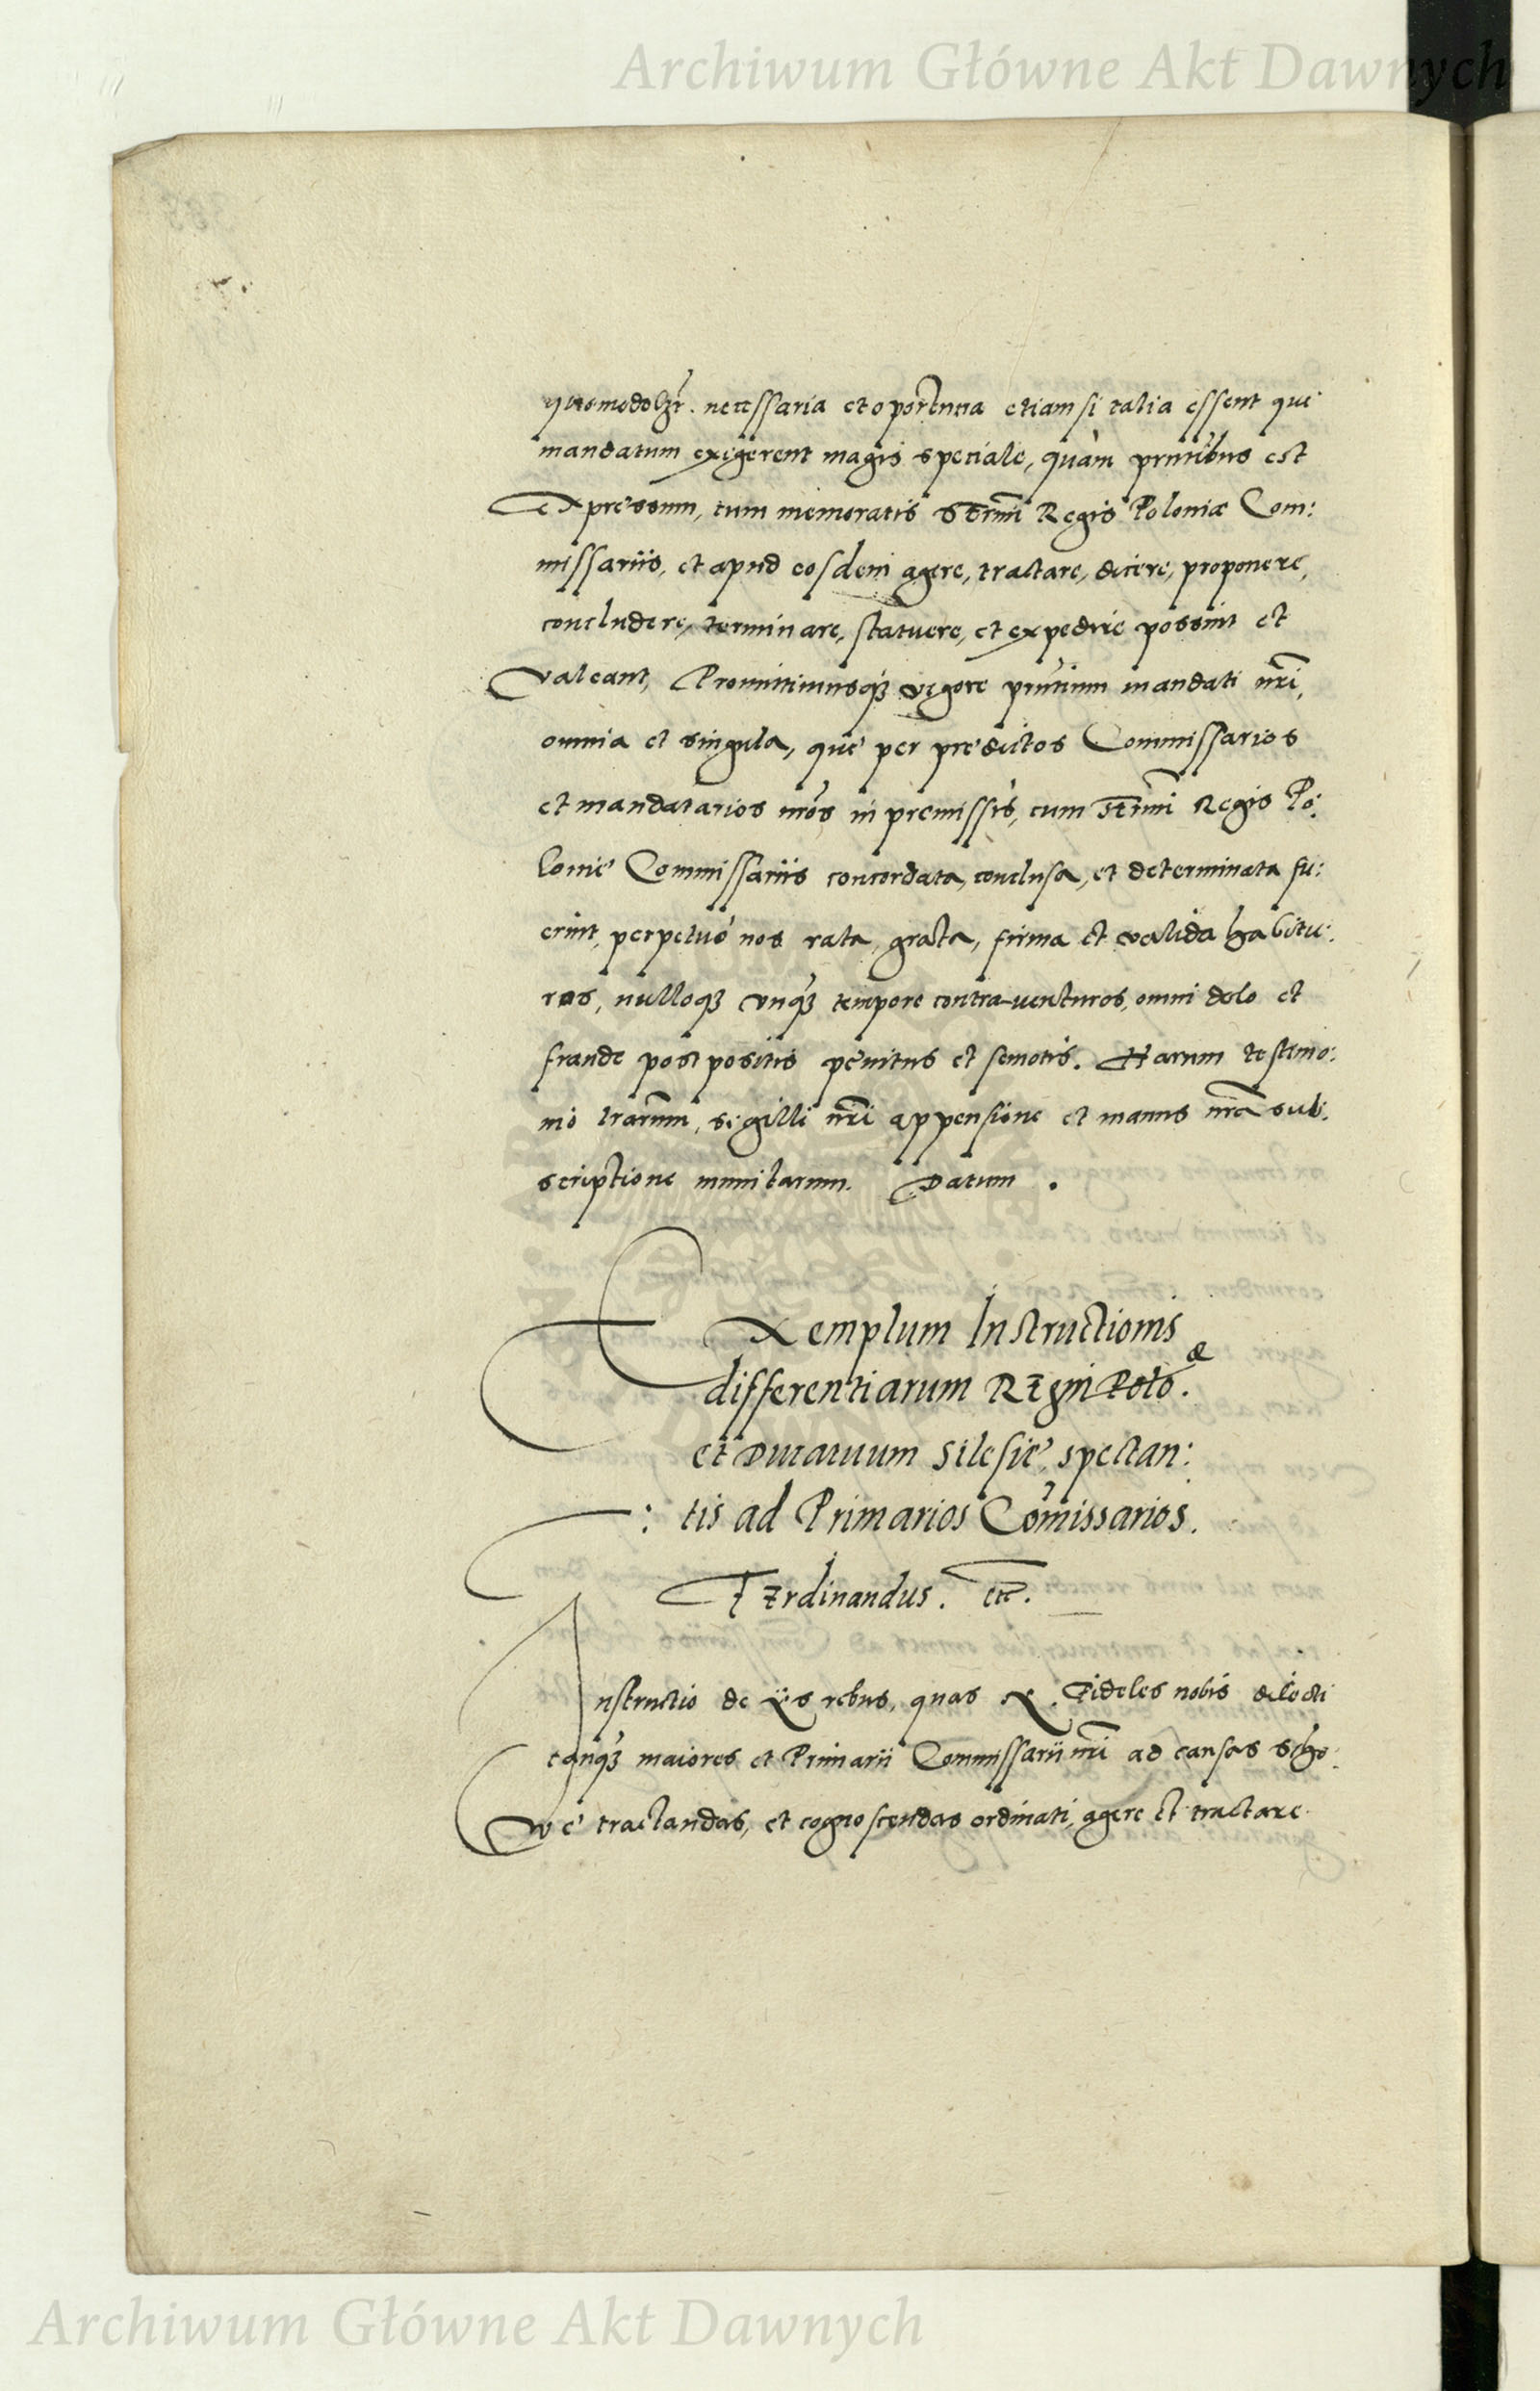 Archiwum Główne Akt Dawnych
quomodolȝr. necessaria et oportuna etiam si talia essent que
mandatum exigerent magis speciale, quàm pñtibus est
expressum, cum memoratis Sermi Regis Poloniæ Com:
missariis, et apud eosdem agere, tractare, dicere, proponere,
concludere, terminare, statuere, et expedire possint et
valeant, Promittimusqȝ vigore pñtium mandati nrĩ,
omnia et singula, que per predictos Commissarios
et mandatarios nrõs in premissis, cum Sermi Regis Po:
lonie Commissariis concordata, conclusa, et determinata fu:
erint, perpetuò nos rata, grata, firma et valida habitu:
ros, nulloqȝ vnqȝ tempore contra-venturos, omni dolo et
fraude postpositis penitus et semotis. Harum testimo:
nio lrarum, sigilli nrĩ appensione et manus nrẽ sub:
scriptione munitarum. Datum .
Exemplum Instructionis
differentiarum Regni Poloæ.
et Ducatuum Silesie, spectan:
: tis ad Primarios Com̃issarios.
Ferdinandus. etc.
Instructio de iis rebus, quas N. Fideles nobis dilecti
tanqȝ maiores et Primarii Commissarii nrĩ ad causas Scho:
we tractandas, et cognoscendas ordinati, agere et tractare
Archiwum Główne Akt Dawnych